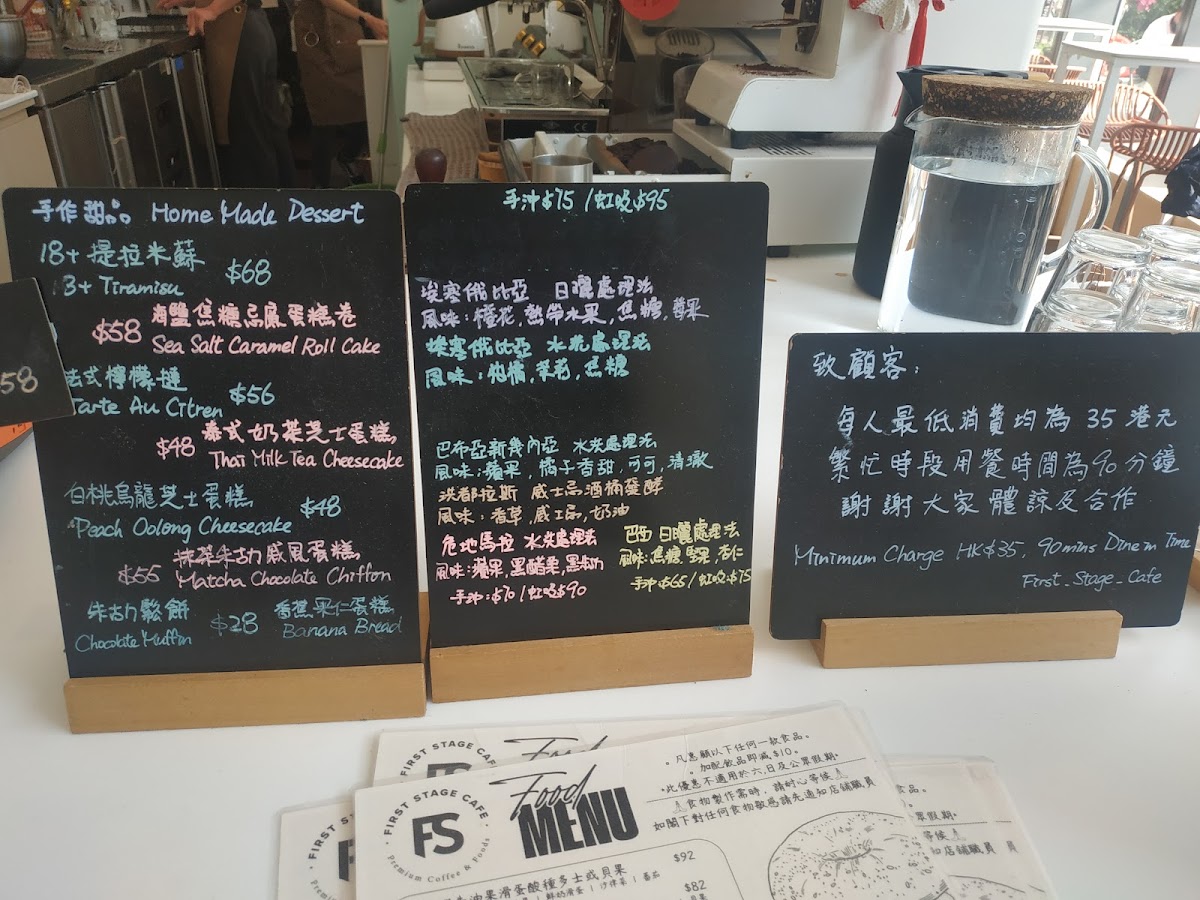 手作甜品 Home Made Dessert
18+提拉米蘇
$68
8+ Tiramisu
海鹽焦糖烏龍蛋糕卷
$58
Sea Salt Caramel Roll Cake
法式檸檬撻
$56
Tarte Au Citren
泰式奶茶芝士蛋糕
$48
Thai Milk Tea Cheesecake
白桃烏龍芝士蛋糕
$48
Peach Oolong Cheesecake
抹茶朱古力戚風蛋糕
$55
Matcha Chocolate Chiffon
朱古力鬆餅
Chocolate Muffin
$28
香蕉果仁蛋糕
Banana Bread
58
手沖$75 / 虹吸$95
埃塞俄比亞 日曬處理法
風味：橙花,熱帶水果,焦糖,莓果
埃塞俄比亞 水洗處理法
風味：柑橘,茉莉,焦糖
巴布亞新幾內亞 水洗處理法
風味：蘋果,橘子香甜,可可,清澈
洪都拉斯 威士忌酒桶發酵
風味：香草,威士忌,奶油
危地馬拉 水洗處理法
風味：蘋果,黑醋栗,黑
手沖：$70 / 虹吸$90
巴西 日曬處理法
風味：焦糖,堅果,杏仁
手沖$65 / 虹吸$75
致顧客：
每人最低消費均為 35 港元
繁忙時段用餐時間為90分鐘
謝謝大家體諒及合作
Minimum Charge HK$35, 90mins Dine in Time
First_Stage_Cafe
FIRST STAGE CAFE
FIRST STAGE CAFE
FS
Premium Coffee & Foods
Food
MENU
凡惠顧以下任何一款食品。
加配飲品即減$10。
此優惠不適用於六,日及公眾假期。
食物製作需時，請耐心等候
如閣下對任何食物敏感請先通知店舖職員
$92
油果滑蛋酸種多士或貝果
鮮奶滑蛋 | 沙律菜 | 番茄
$82